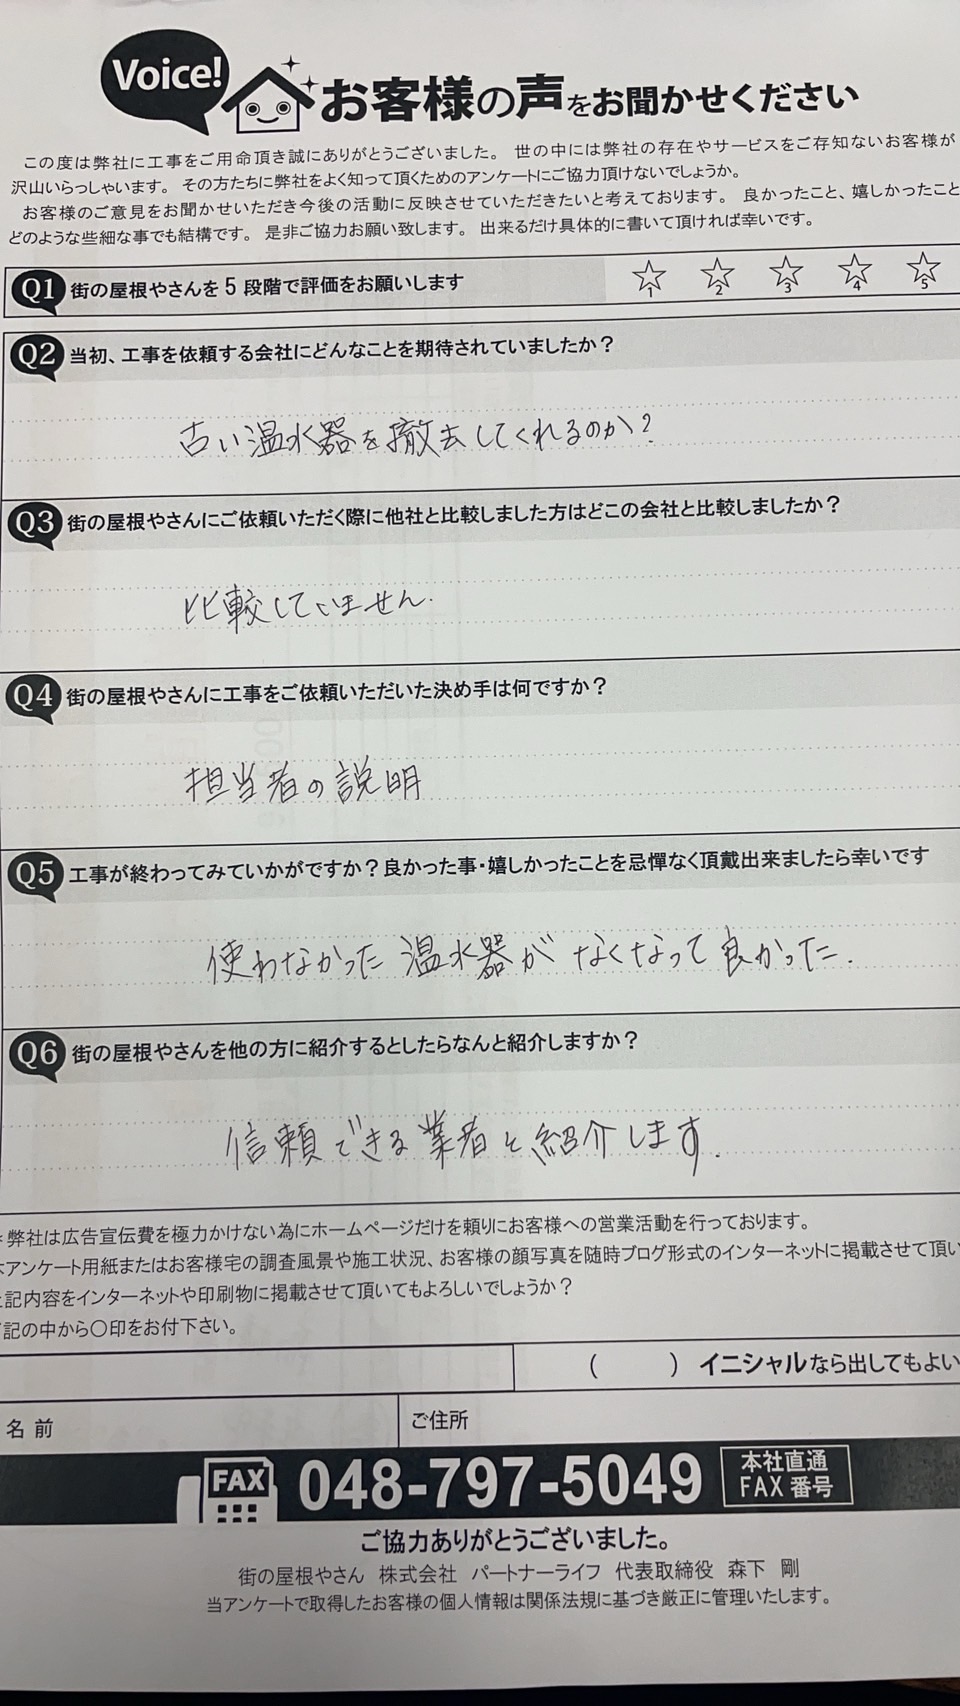 Voice!
お客様の声をお聞かせください
この度は弊社に工事をご用命頂き誠にありがとうございました。 世の中には弊社の存在やサービスをご存知ないお客様が
沢山いらっしゃいます。 その方たちに弊社をよく知って頂くためのアンケートにご協力頂けないでしょうか。
お客様のご意見をお聞かせいただき今後の活動に反映させていただきたいと考えております。 良かったこと、嬉しかったこと
どのような些細な事でも結構です。 是非ご協力お願い致します。 出来るだけ具体的に書いて頂ければ幸いです。
Q1 街の屋根やさんを5段階で評価をお願いします
1 2 3 4 5
Q2 当初、工事を依頼する会社にどんなことを期待されていましたか？
古い温水器を撤去してくれるのか？
Q3 街の屋根やさんにご依頼いただく際に他社と比較しました方はどこの会社と比較しましたか？
比較していません.
Q4 街の屋根やさんに工事をご依頼いただいた決め手は何ですか？
担当者の説明
Q5 工事が終わってみていかがですか？良かった事・嬉しかったことを忌憚なく頂戴出来ましたら幸いです
使わなかった温水器がなくなって良かった.
Q6 街の屋根やさんを他の方に紹介するとしたらなんと紹介しますか？
信頼できる業者と紹介します.
弊社は広告宣伝費を極力かけない為にホームページだけを頼りにお客様への営業活動を行っております。
アンケート用紙またはお客様宅の調査風景や施工状況、お客様の顔写真を随時ブログ形式のインターネットに掲載させて頂い
記内容をインターネットや印刷物に掲載させて頂いてもよろしいでしょうか？
記の中から〇印をお付下さい。
（　　　）イニシャルなら出してもよい
名前 ご住所
FAX 048-797-5049 本社直通
FAX番号
ご協力ありがとうございました。
街の屋根やさん 株式会社 パートナーライフ 代表取締役 森下 剛
当アンケートで取得したお客様の個人情報は関係法規に基づき厳正に管理いたします。